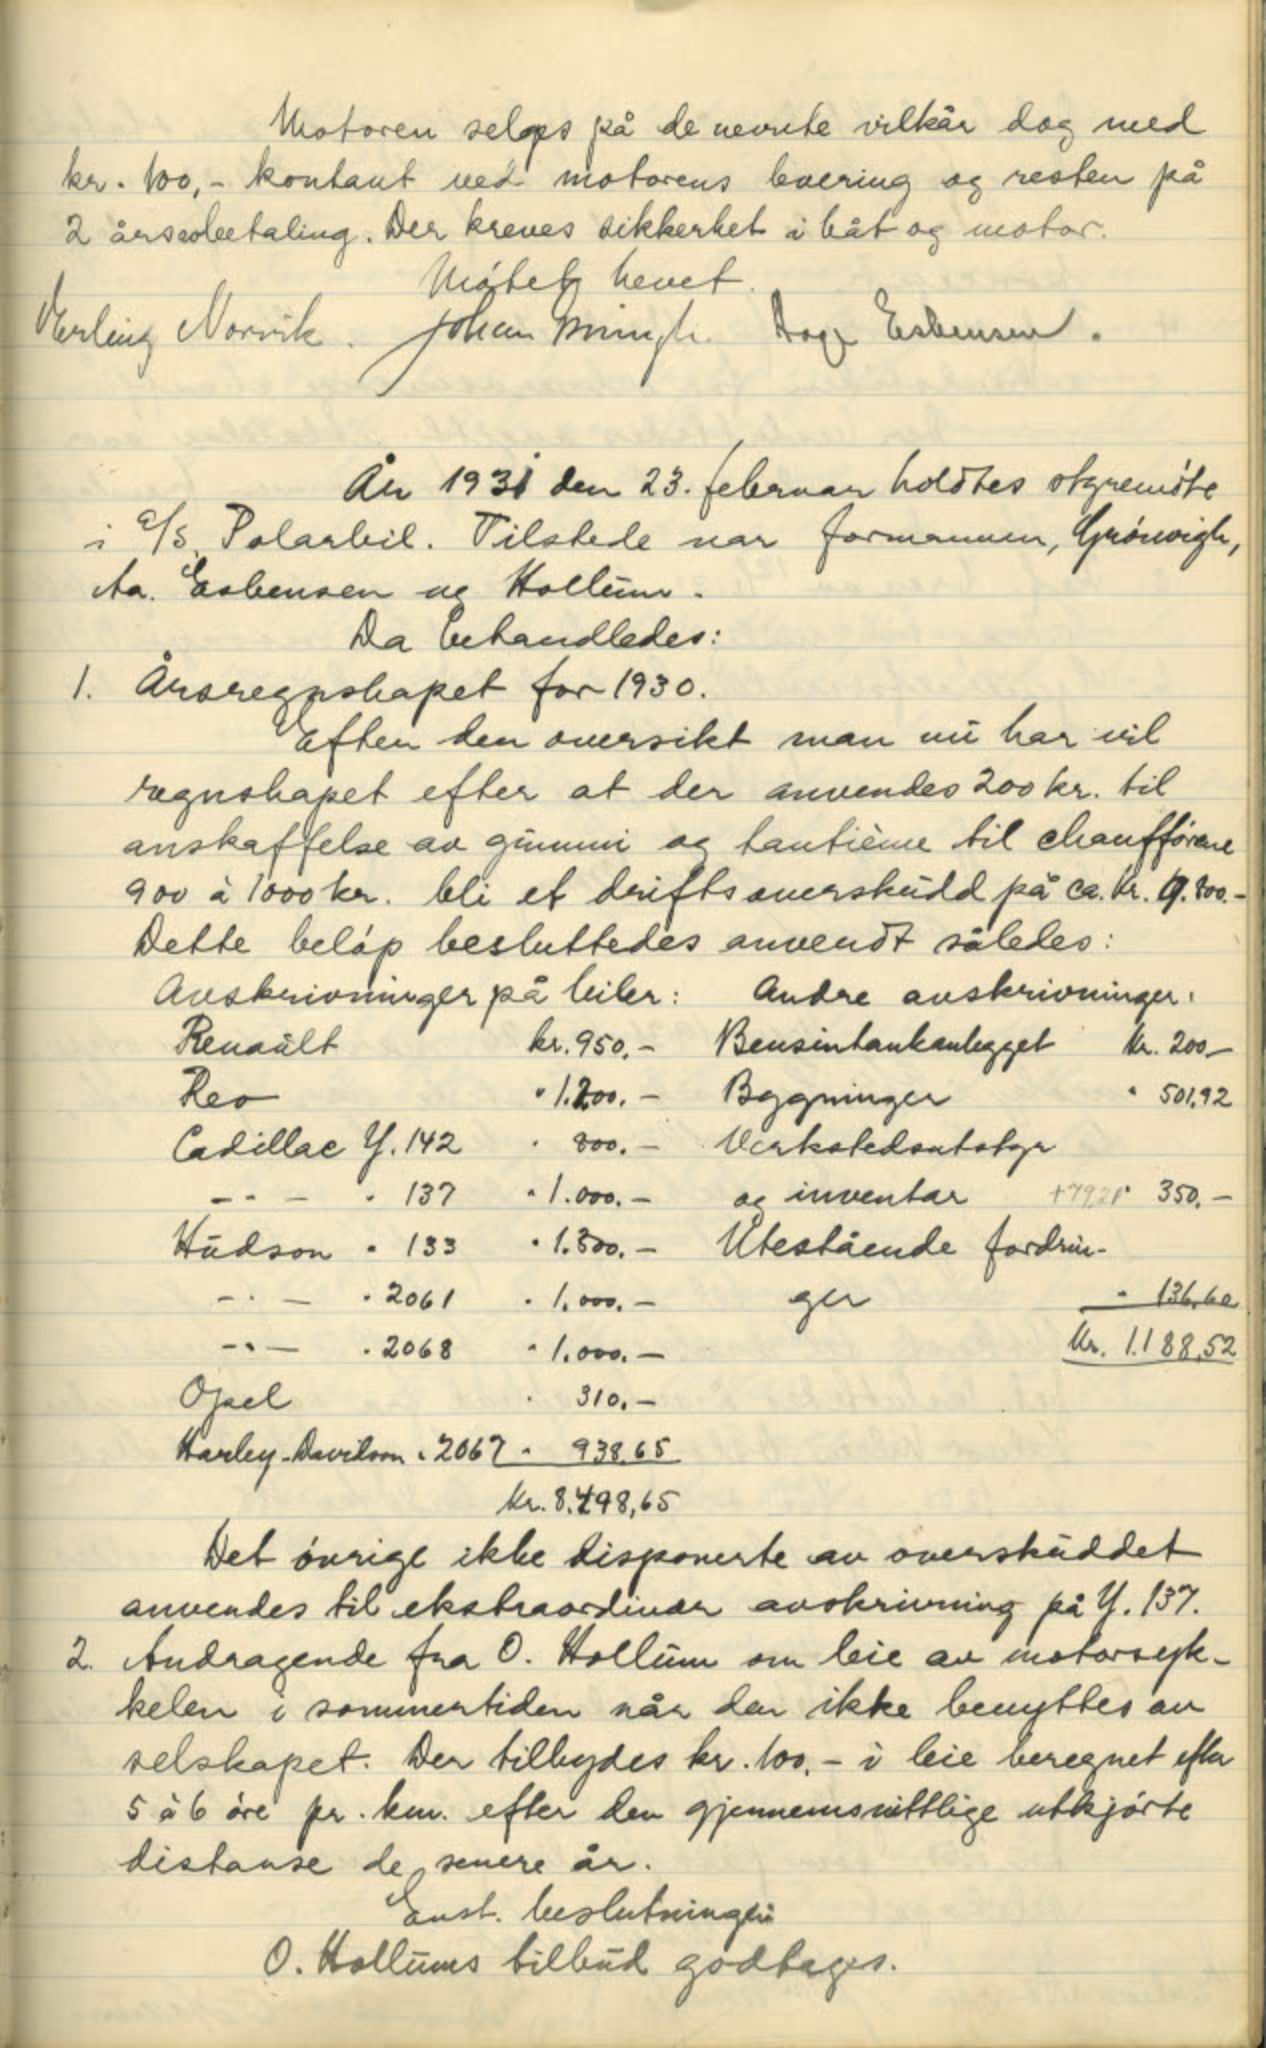 Motoren selges på de nevnte vilkår dog med
kr. 100,- kontant ved motorens levering og resten på
2 årsavbetaling. Der kreves sikkerhet i båt og motor.
Møtet hevet.
Erling Norvik. Johan Aage Esbensen.
År 1931 den 23. februar holdtes styremøte
i a/s. Polarbil. Tilstede var formannen, Grønvigh,
Aa. Esbensen og Hollum.
Da behandledes:
1. Årsregnskapet for 1930.
Efter den oversikt man nu har vil
regnskapet efter at der anvendes 200 kr. til
anskaffelse av gummi og tantième til chaufførene
900 à 1000 kr. bli et driftsoverskudd på ca. kr. 9.800.-
Dette beløp besluttedes anvendt således:
Avskrivninger på biler: Andre avskrivninger:
Renault kr. 950.- Bensintankanlegget kr. 200.-
Reo " 1.200.- Bygninger " 501,92
Cadillac Y. 142 " 800.- Verkstedsutstyr
-"- " 137 " 1.000.- og inventar +79,21 " 350.-
Hudson " 133 " 1.300.- Utestående fordrin-
-"- " 2061 " 1.000.- ger " 136,60
-"- " 2068 " 1.000.- Kr. 1.188,52
Opel " 310.-
Harley-Davidson " 2067 " 938,65
Kr. 8.498,65
Det øvrige ikke disponerte av overskuddet
anvendes til ekstraordinær avskrivning på Y. 137.
2. Andragende fra O. Hollum om leie av motorsyk-
kelen i sommertiden når den ikke benyttes av
selskapet. Der tilbydes kr. 100,- i leie beregnet efter
5 à 6 øre pr. km. efter den gjennemsnittlige utkjørte
distanse de senere år.
Enst. beslutning:
O. Hollums tilbud godtages.